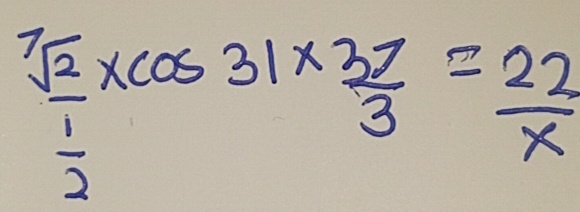 ⁷√2 / (1/2) × cos 31 × 37/3 = 22/x